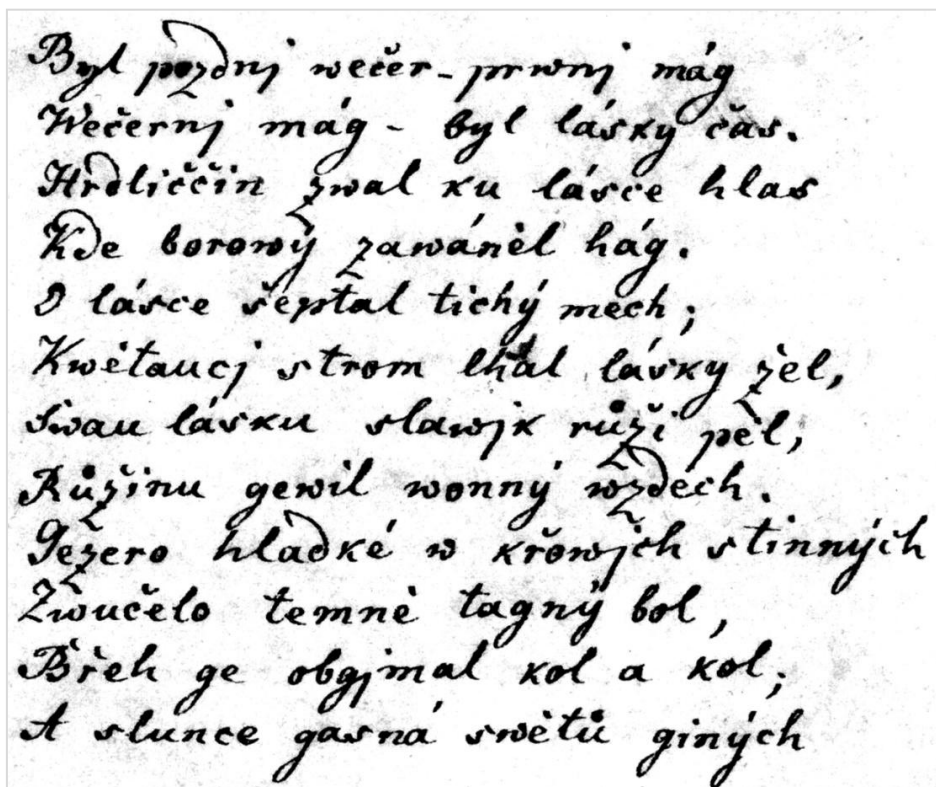 Byl pozdnj wečer – prwnj mág
Wečernj mág – byl lásky čas.
Hrdliččin zwal ku lásce hlas
Kde borowý zawáněl hág.
O lásce šeptal tichý mech;
Kwětaucj strom lhal lásky žel,
Swau lásku slawjk růži pěl,
Růžinu gewil wonný wzdech.
Gezero hladké w křowjch stinných
Zwučelo temně tagný bol,
Břeh ge obgjmal kol a kol;
A slunce gasná swětů giných